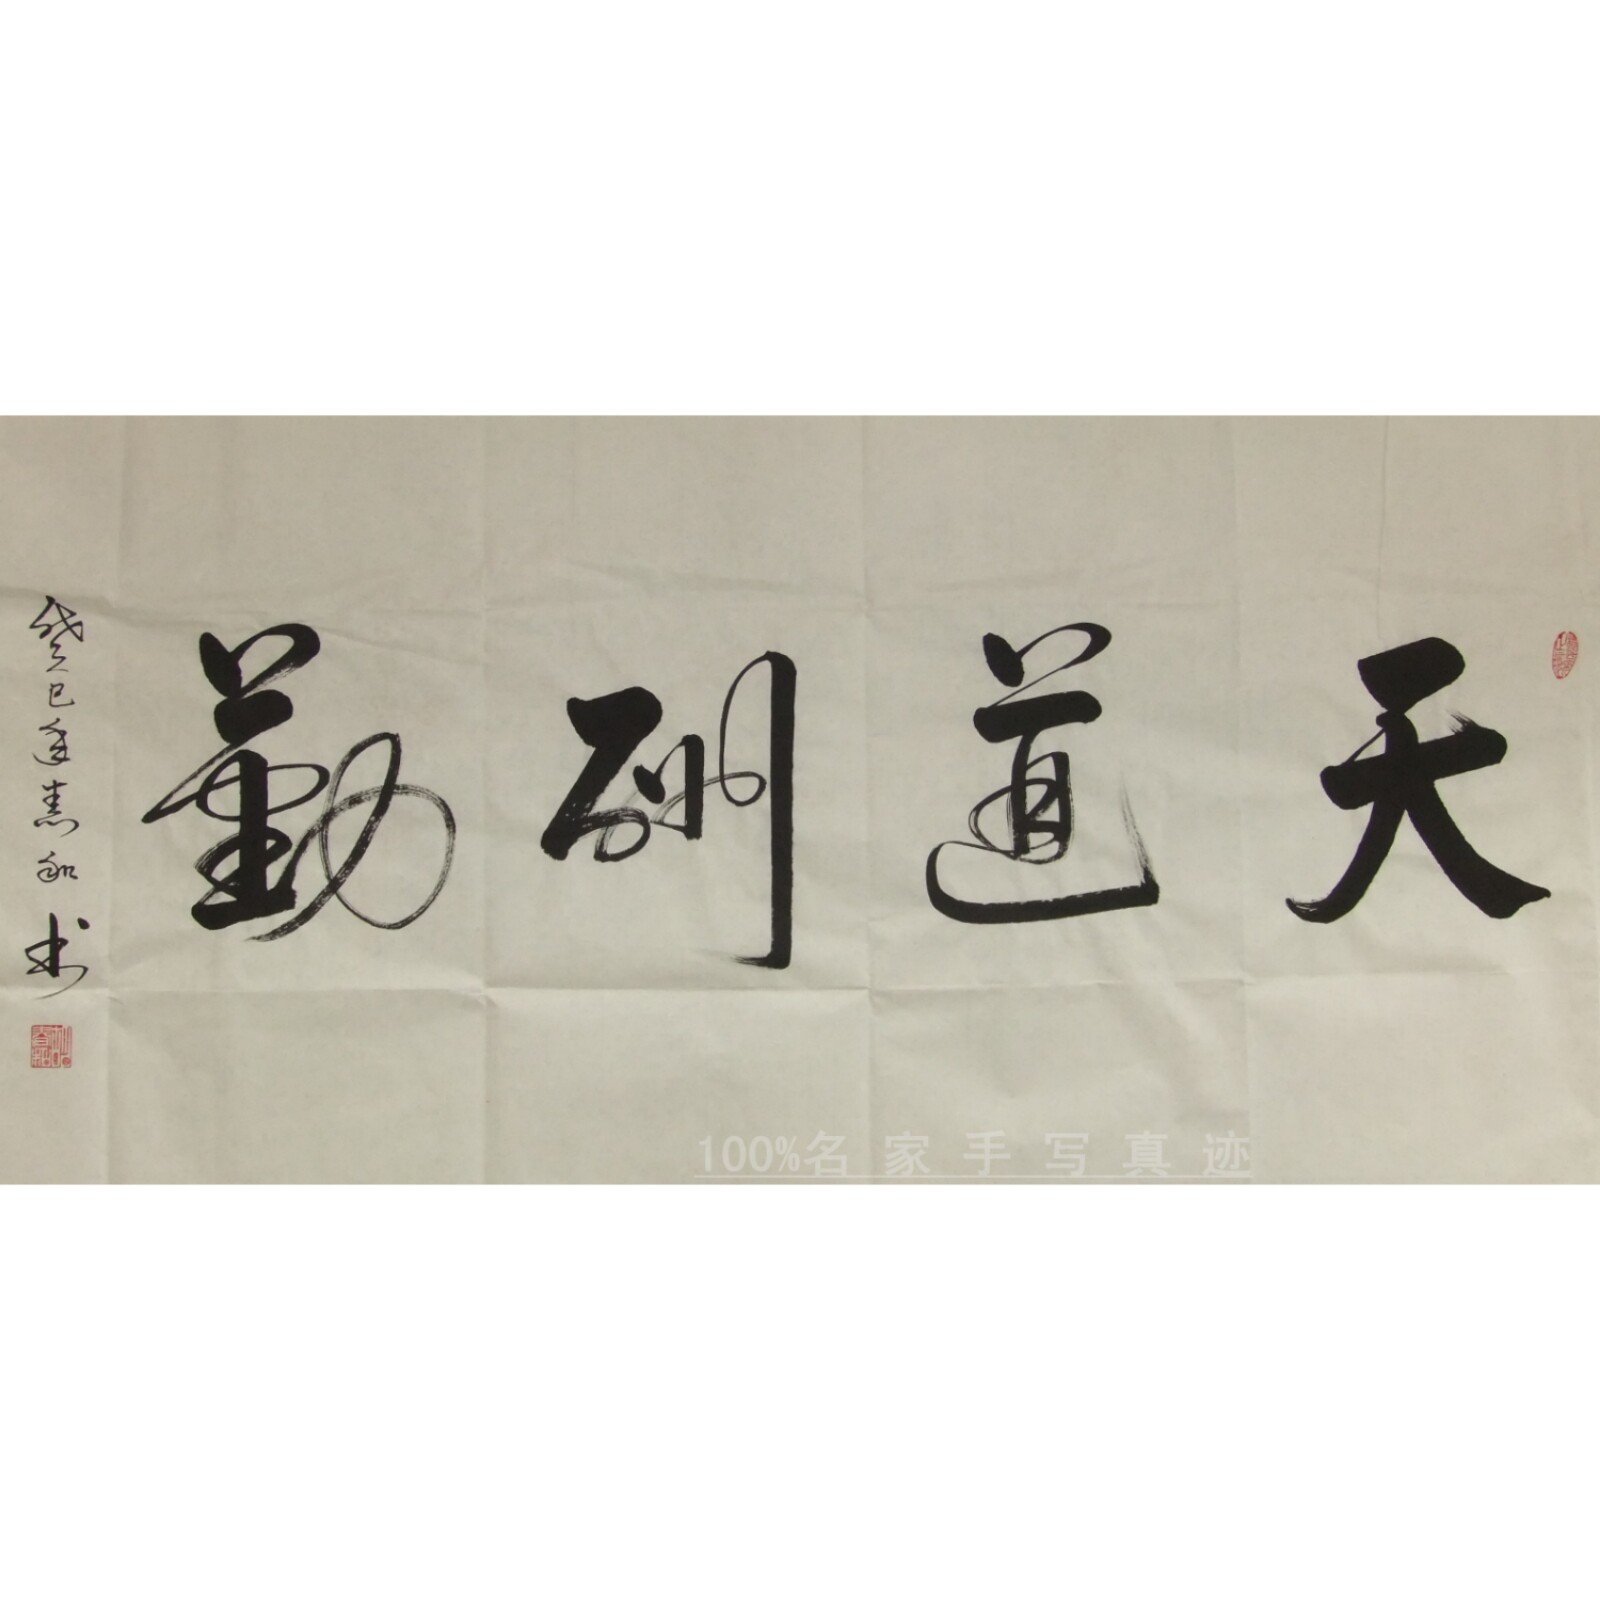 天道酬勤
癸巳年春和书
100%名家手写真迹